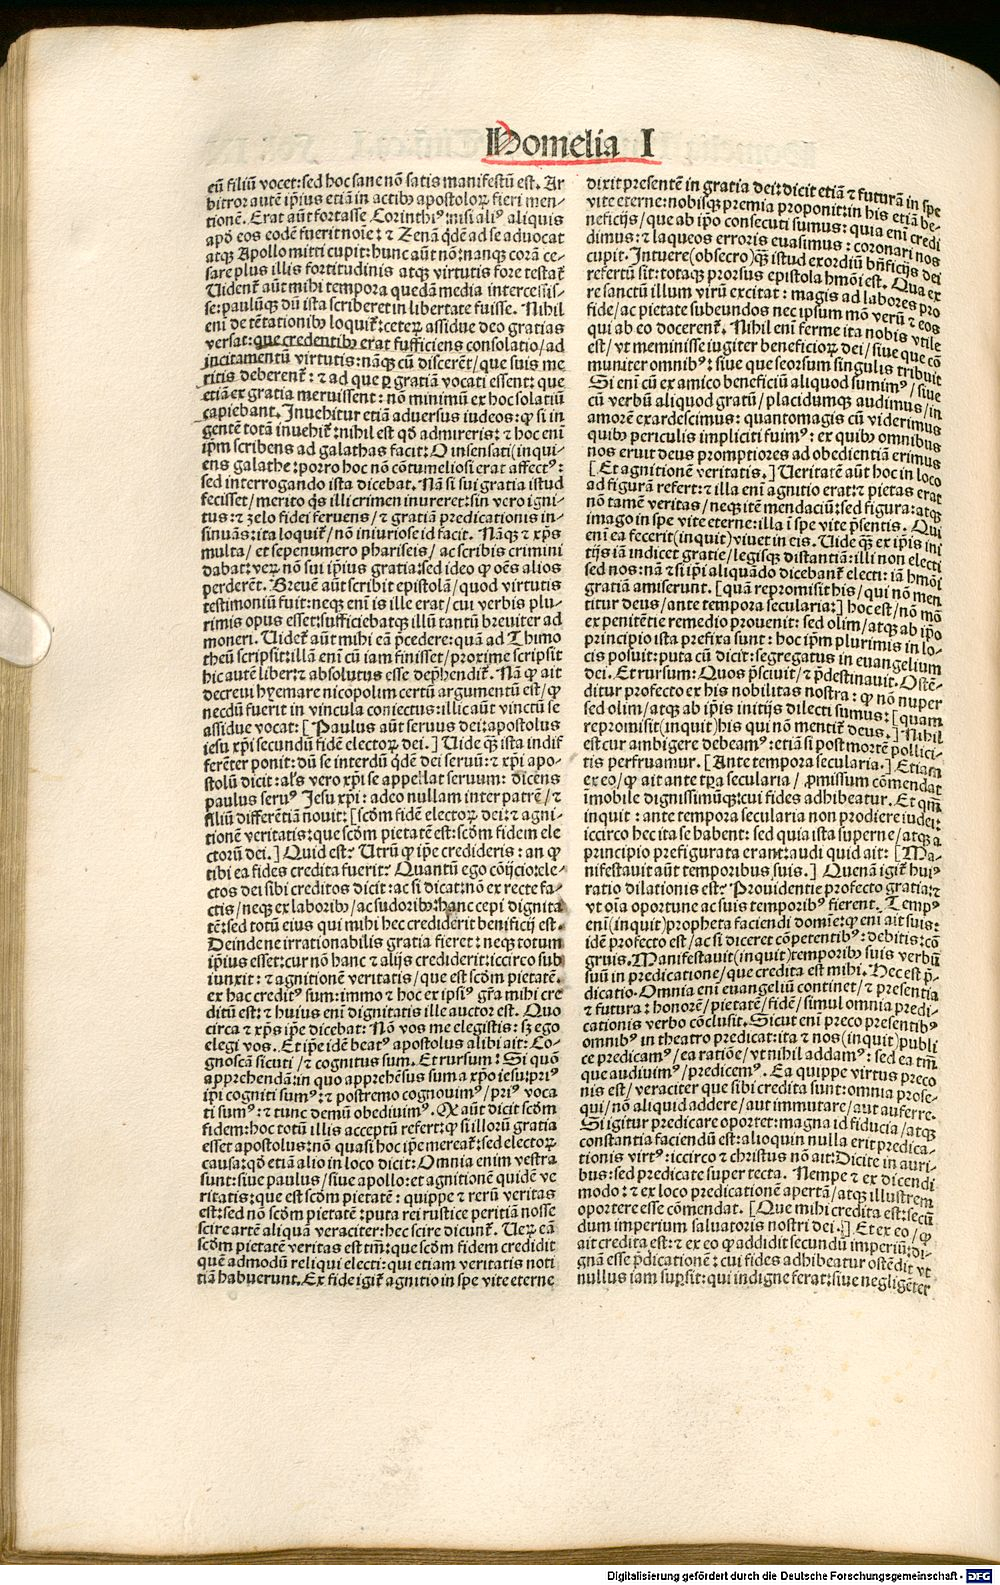 Homelia I
eū filiū vocet:sed hoc sane nō satis manifestū est. Ar
bitror autē ip̄ius etiā in actibꝫ apostoloꝝ fieri men-
tionē. Erat aūt fortasse Corinthiꝰ:nisi aliꝰ aliquis
apđ eos eodē fuerit noīe: ⁊ Zenā qđē ad se aduocat
atqꝫ Apollo mitti cupit: hunc aūt nō: nanqꝫ corā ce-
sare plus illis fortitudinis atqꝫ virtutis fore testat̄
Uidenť aūt mihi tempora quedā media intercessis-
se: paulūqꝫ dū ista scriberet in libertate fuisse. Nihil
eni de tētationibꝫ loquiť: ceteꝝ assidue deo gratias
versat: que credentibꝫ erat sufficiens consolatio/ad
incitamentū virtutis: nāqꝫ cū discerēt/que suis me
ritis deberenť: ⁊ ad que ꝑ gratiā vocati essent: que
etiā ex gratia meruissent: nō minimū ex hoc solatiū
capiebant. Inuehitur etiā aduersus iudeos: ꝙ si in
gentē totā inuehiť: nihil est qđ admireris: ⁊ hoc eni
ip̄m scribens ad galathas facit: O insensati(inqui-
ens galathe: porro hoc nō cōtumeliosi erat affectꝰ:
sed interrogando ista dicebat. Nā si sui gratia istud
fecisset/merito qs illi crimen inureret: sin vero igni-
tus: ⁊ zelo fidei feruens/⁊ gratiā predicationis in-
sinuās: ita loquiť/nō iniuriose id facit. Nāqꝫ ⁊ xp̄s
multa/et sepenumero phariseis/ac scribis crimini
dabat: veꝝ nō sui ip̄ius gratia: sed ideo ꝙ oēs alios
perderēt. Breuē aūt scribit epistolā/quod virtutis
testimoniū fuit: neqꝫ eni is ille erat/cui verbis plu-
rimis opus esset: sufficiebatqꝫ illū tantū breuiter ad
moneri. Uideť aūt mihi eā p̄cedere: quā ad Thimo
theū scripsit: illā eni cū iam finisset/proxime scripsit
hic autē liber: ⁊ absolutus esse dep̄hendiť. Nā ꝙ ait
decreui hyemare nicopolim certū argumentū est/ꝙ
necdū fuerit in vincula coniectus: illic aūt vinctū se
assidue vocat: [Paulus aūt seruus dei: apostolus
iesu xp̄i secundū fidē electoꝝ dei.] Uide qꝫ ista indif
ferēter ponit: dū se interdū qđē dei seruū: ⁊ xp̄i apo-
stolū dicit: al's vero xp̄i se appellat seruum: dicens
paulus seruꝰ Jesu xp̄i: adeo nullam inter patrē/⁊
filiū differētiā nouit: [scđm fidē electoꝝ dei: ⁊ agni-
tionē veritatis: que scđm pietatē est: scđm fidem ele
ctorū dei.] Quid est? Utrū ꝙ ip̄e credideris: an ꝙ
tibi ea fides credita fuerit? Quantū ego cōijcio: ele-
ctos dei sibi creditos dicit: ac si dicat: nō ex recte fa-
ctis/neqꝫ ex laboribꝫ/ac sudoribꝫ: hanc cepi dignita
tē: sed totū eius qui mihi hec crediderit benificij est.
Deinde ne irrationabilis gratia fieret: neqꝫ totum
ip̄ius esset: cur nō hanc ⁊ alijs crediderit: iccirco sub
iunxit: ⁊ agnitionē veritatis/que est scđm pietatē.
ex hac creditꝰ sum: immo ⁊ hoc ex ipsiꝰ gr̄a mihi cre
ditū est: ⁊ huius eni dignitatis ille auctor est. Quo
circa ⁊ xp̄s ip̄e dicebat: Nō vos me elegistis: sꝫ ego
elegi vos. Et ip̄e idē beatꝰ apostolus alibi ait: Co-
gnoscā sicuti/⁊ cognitus sum. Et rursum: Si quō
apprehendā: in quo apprehēsus sum a xp̄o iesu: priꝰ
ip̄i cogniti sumꝰ: ⁊ postremo cognouimꝰ/priꝰ voca
ti sumꝰ: ⁊ tunc demū obediuimꝰ. Ex aūt dicit scđm
fidem: hoc totū illis acceptū refert: ꝙ si illorū gratia
esset apostolus: nō quasi hoc ip̄e mereať: sed electoꝝ
causa: qđ etiā alio in loco dicit: Omnia enim vestra
sunt: siue paulus/siue apollo: et agnitionē quidē ve
ritatis: que est scđm pietatē: quippe ⁊ rerū veritas
est: sed nō scđm pietatē: puta rei rustice peritiā nosse
scire artē aliquā veraciter: hec scire dicunť. Ueꝝ eā
scđm pietatē veritas est tm̄: que scđm fidem credidit
quē admodū reliqui electi: qui etiam veritatis noti
tiā habuerunt. Ex fide igiť agnitio in spe vite eterne
dixit presentē in gratia dei: dicit etiā ⁊ futurā in spe
vite eterne: nobisqꝫ premia proponit: in his etiā be-
neficijs/que ab ip̄o consecuti sumus: quia eni credi
dimus: ⁊ laqueos erroris euasimus: coronari nos
cupit. Intuere(obsecro)qꝫ istud exordiū bn̄ficijs dei
refertū sit: totaqꝫ prorsus epistola hmōi est. Qua ex
re sanctū illum virū excitat: magis ad labores pro
fide/ac pietate subeundos nec ipsum mō verū ⁊ eos
qui ab eo docerenť. Nihil eni ferme ita nobis vtile
est/vt meminisse iugiter beneficioꝝ dei/siue que cō
muniter omnibꝰ: siue que seorsum singulis tribuit
Si eni cū ex amico beneficiū aliquod sumimꝰ/siue
cū verbū aliquod gratū/placidumqꝫ audimus/in
amorē exardescimus: quantomagis cū viderimus
quibꝫ periculis impliciti fuimꝰ: ex quibꝫ omnibus
nos eruit deus promptiores ad obedientiā erimus
[Et agnitionē veritatis.] Ueritatē aūt hoc in loco
ad figurā refert: ⁊ illa eni agnitio erat: ⁊ pietas erat
nō tamē veritas/neqꝫ itē mendaciū: sed figura: atqꝫ
imago in spe vite eterne: illa ī spe vite p̄sentis. Qui
eni ea fecerit(inquit)viuet in eis. Uide qꝫ ex ip̄is ini
tijs iā indicet gratie/legisqꝫ distantiā: illi non electi
sed nos: nā ⁊ si ip̄i aliquādo dicebanť electi: iā hmōi
gratiā amiserunt. [quā repromisit his/qui nō men
titur deus/ante tempora secularia:] hoc est/nō mō
ex penitētie remedio prouenit: sed olim/atqꝫ ab ip̄o
principio ista prefixa sunt: hoc ip̄m plurimis in lo-
cis posuit: puta cū dicit: segregatus in euangelium
dei. Et rursum: Quos p̄sciuit/⁊ p̄destinauit. Ostē-
ditur profecto ex his nobilitas nostra: ꝙ nō nuper
sed olim/atqꝫ ab ip̄is initijs dilecti sumus: [quam
repromisit(inquit)his qui nō mentiť deus.] Nihil
est cur ambigere debeamꝰ: etiā si post mortē pollici-
tis perfruamur. [Ante tempora secularia.] Etiam
ex eo/ꝙ ait ante tꝑa secularia/ꝓmissum cōmendat
īmobile dignissimūqꝫ: cui fides adhibeatur. Et qm̄
inquit: ante tempora secularia non prodiere iudei:
iccirco hec ita se habent: sed quia ista superne/atqꝫ a
principio prefigurata erant: audi quid ait: [Ma-
nifestauit aūt temporibus suis.] Quenā igiť huiꝰ
ratio dilationis est? Prouidentie profecto gratia: ⁊
vt oīa oportune ac suis temporibꝰ fierent. Tempꝰ
eni(inquit)propheta faciendi domīe: ꝙ eni ait suis:
idē profecto est/ac si diceret cōpetentibꝰ: debitis: cō
gruis. Manifestauit(inquit)temporibꝫ suis verbū
suū in predicatione/que credita est mihi. Hec est p̄-
dicatio. Omnia eni euangeliū continet/⁊ presentia
⁊ futura: honorē/pietatē/fidē/simul omnia predi-
cationis verbo cōclusit. Sicut eni preco presentibꝰ
omnibꝰ in theatro predicat: ita ⁊ nos(inquit)publi
ce predicamꝰ/ea ratiōe/vt nihil addamꝰ: sed ea tm̄
que audiuimꝰ/predicemꝰ. Ea quippe virtus preco
nis est/veraciter que sibi credita sunt: omnia prose-
qui/nō aliquid addere/aut immutare/aut auferre.
Si igitur predicare oportet: magna id fiducia/atqꝫ
constantia faciendū est: alioquin nulla erit predica-
tionis virtꝰ: iccirco ⁊ christus nō ait: Dicite in auri-
bus: sed predicate super tecta. Nempe ⁊ ex dicendi
modo: ⁊ ex loco predicationē apertā/atqꝫ illustrem
oportere esse cōmendat. [Que mihi credita est: secū
dum imperium saluatoris nostri dei.] Et ex eo/ꝙ
ait credita est: ⁊ ex eo ꝙ addidit secundū imperiū: di-
gnā esse p̄dicationē: cui fides adhibeatur ostēdit vt
nullus iam suꝑsit: qui indigne ferat: siue negligēter
Digitalisierung gefördert durch die Deutsche Forschungsgemeinschaft - DFG